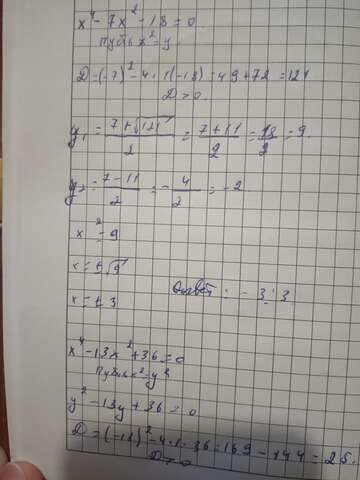 x⁴ - 7x² - 18 = 0.
Пусть x² = y
D = (-7)² - 4 · 1(-18) = 49 + 72 = 121
D > 0.
y₁ = (7 + √121)/2 = (7 + 11)/2 = 18/2 = 9.
y₂ = (7 - 11)/2 = - 4/2 = -2
x² = 9
x = ± √9
x = ± 3
Ответ: - 3; 3
x⁴ - 13x² + 36 = 0
Пусть x² = y
y² - 13y + 36 = 0
D = (-13)² - 4 · 1 · 36 = 169 - 144 = 25.
D > 0